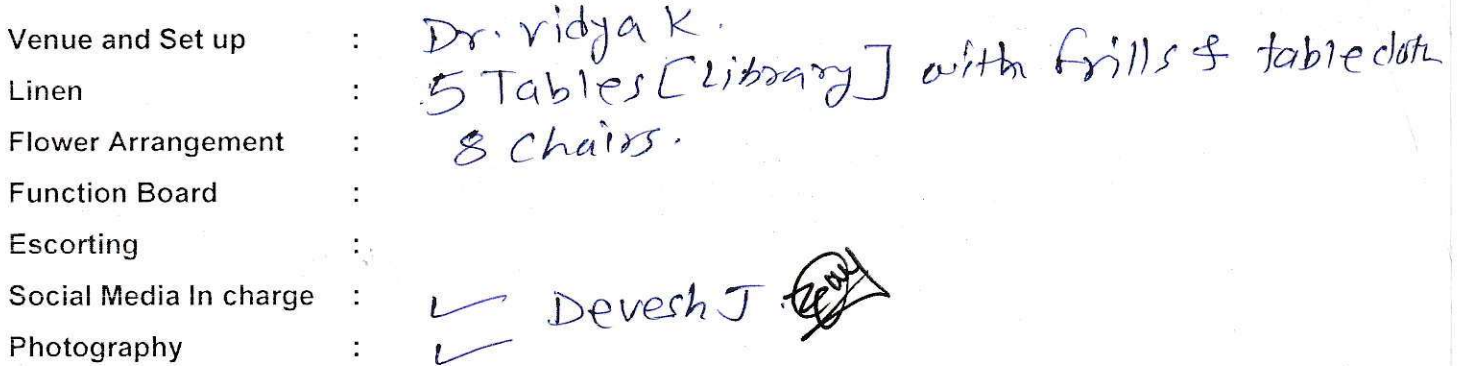 Venue and Set up : Dr. Vidya K.
Linen : 5 Tables [Library] with frills & tablecloth
Flower Arrangement : 8 Chairs.
Function Board :
Escorting :
Social Media In charge : ✓ Devesh J
Photography : ✓